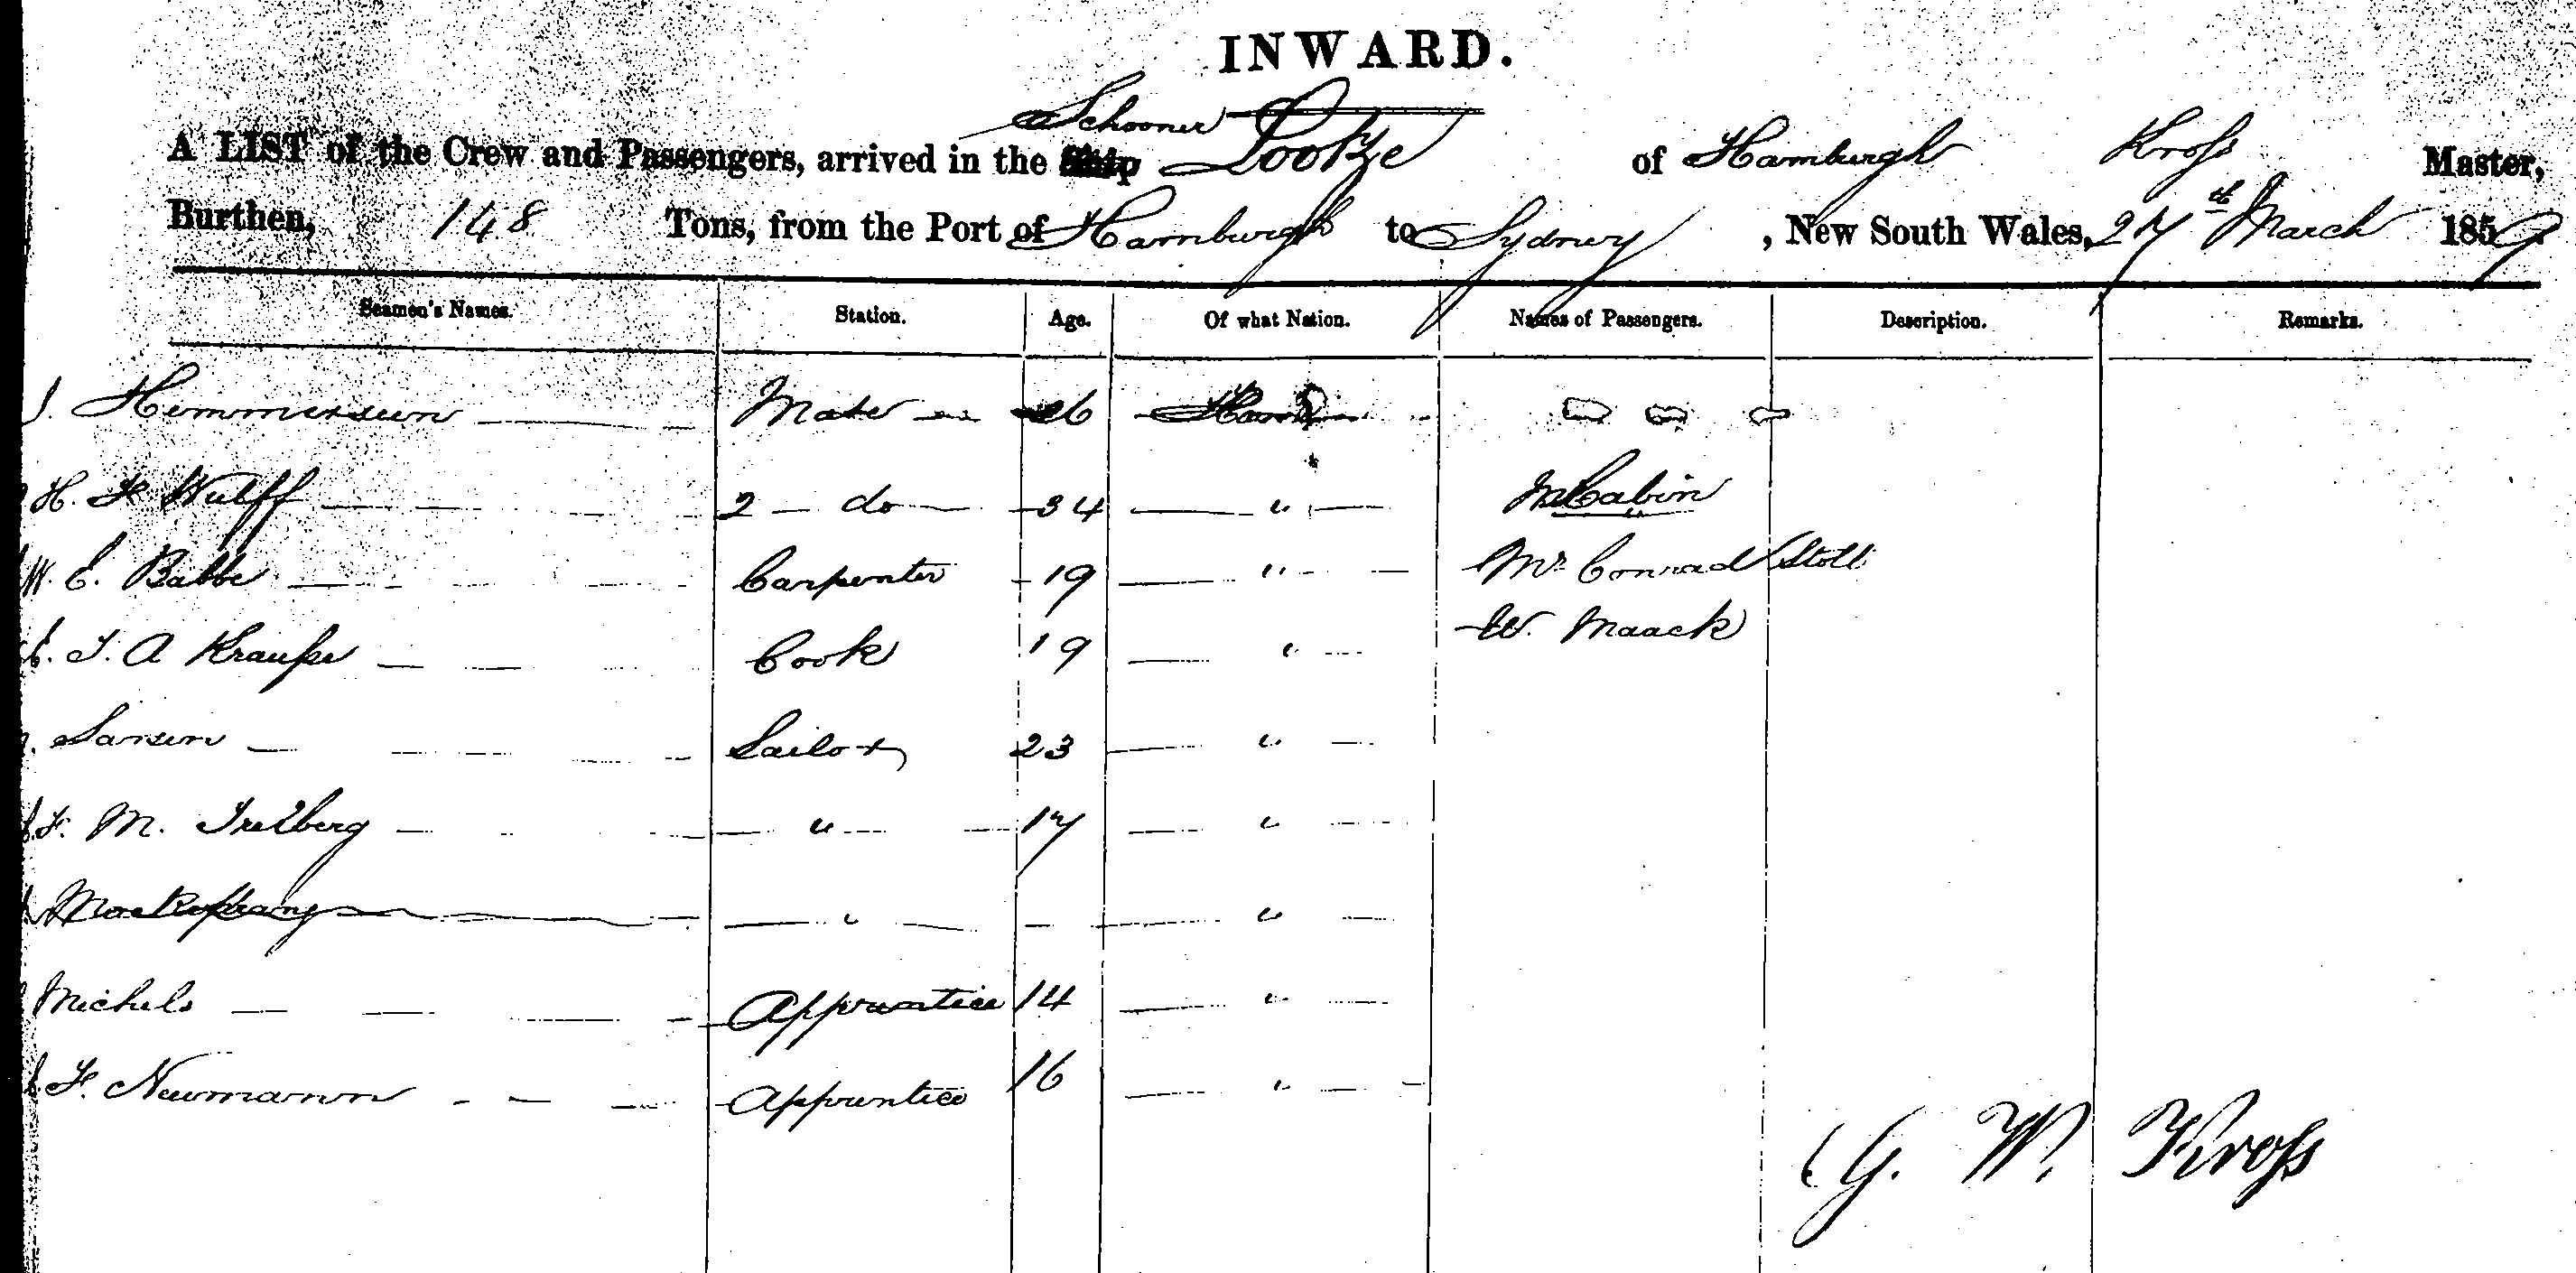 INWARD.
Schooner
A LIST of the Crew and Passengers, arrived in the Ship Lootze of Hamburgh Kross Master,
Burthen, 148 Tons, from the Port of Hamburgh to Sydney, New South Wales, 27th March 1859
Seamen's Names. Station. Age. Of what Nation. Names of Passengers. Description. Remarks.
J. Mate 26 Hamb
H. F Wulff 2 do 34 " Cabin
W. E. Babbe Carpenter 19 " Mr Conrad Stoll
T. A Krausse Cook 19 " W. Maack
Sailor 23 "
F. M. " 17 "
" "
Michels Apprentice 14 "
F. Neumann Apprentice 16 "
G. W. Kross